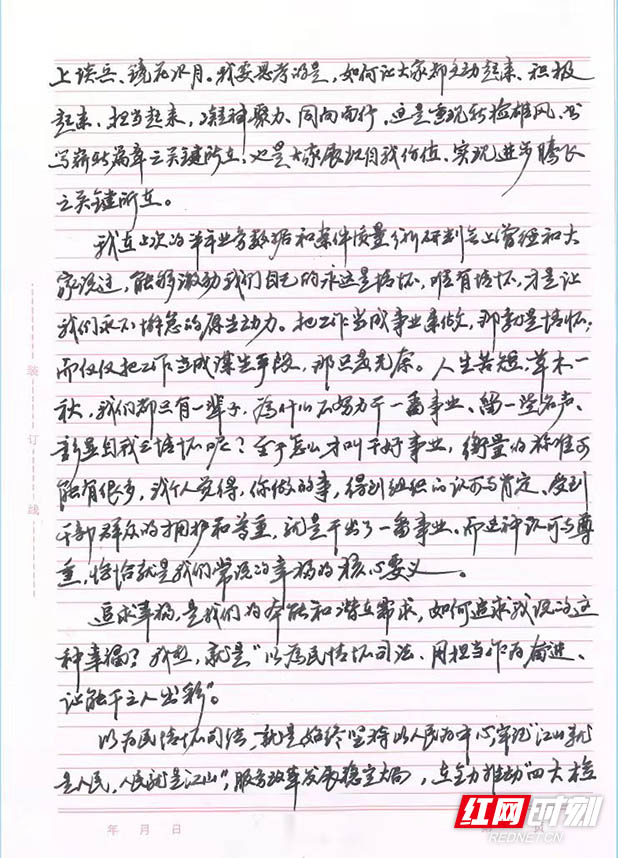 上谈兵、镜花水月。我要思考的是，如何让大家都主动起来、积极
起来、担当起来，凝神聚力、同向而行，这是重现新检雄风、书
写崭新篇章之关键所在，也是大家展现自我价值、实现进步腾飞
之关键所在。
我在上次的半年业务数据和案件质量分析研判会上曾经和大
家说过，能够激励我们自己的永远是情怀，唯有情怀，才是让
我们永不懈怠的原生动力。把工作当成事业来做，那就是情怀；
而仅仅把工作当成谋生手段，那只是无奈。人生苦短，草木一
秋，我们都只有一辈子，为什么不努力干一番事业、留一些名声、
彰显自我之情怀呢？至于怎么才叫干好事业，衡量的标准可
能有很多，我个人觉得，你做的事，得到组织的认可与肯定、受到
干部群众的拥护和尊重，就是干出了一番事业。而这种认可与尊
重，恰恰就是我们常说的幸福的核心要义。
追求幸福，是我们的本能和潜在需求，如何追求我说的这
种幸福？我想，就是“以为民情怀司法、用担当作为奋进、
让能干之人出彩”。
以为民情怀司法，就是始终坚持以人民为中心，牢记“江山就
是人民，人民就是江山”，服务改革发展稳定大局，在全力推动“四大检
装
订
线
年 月 日
红网时刻
REDNET.CN